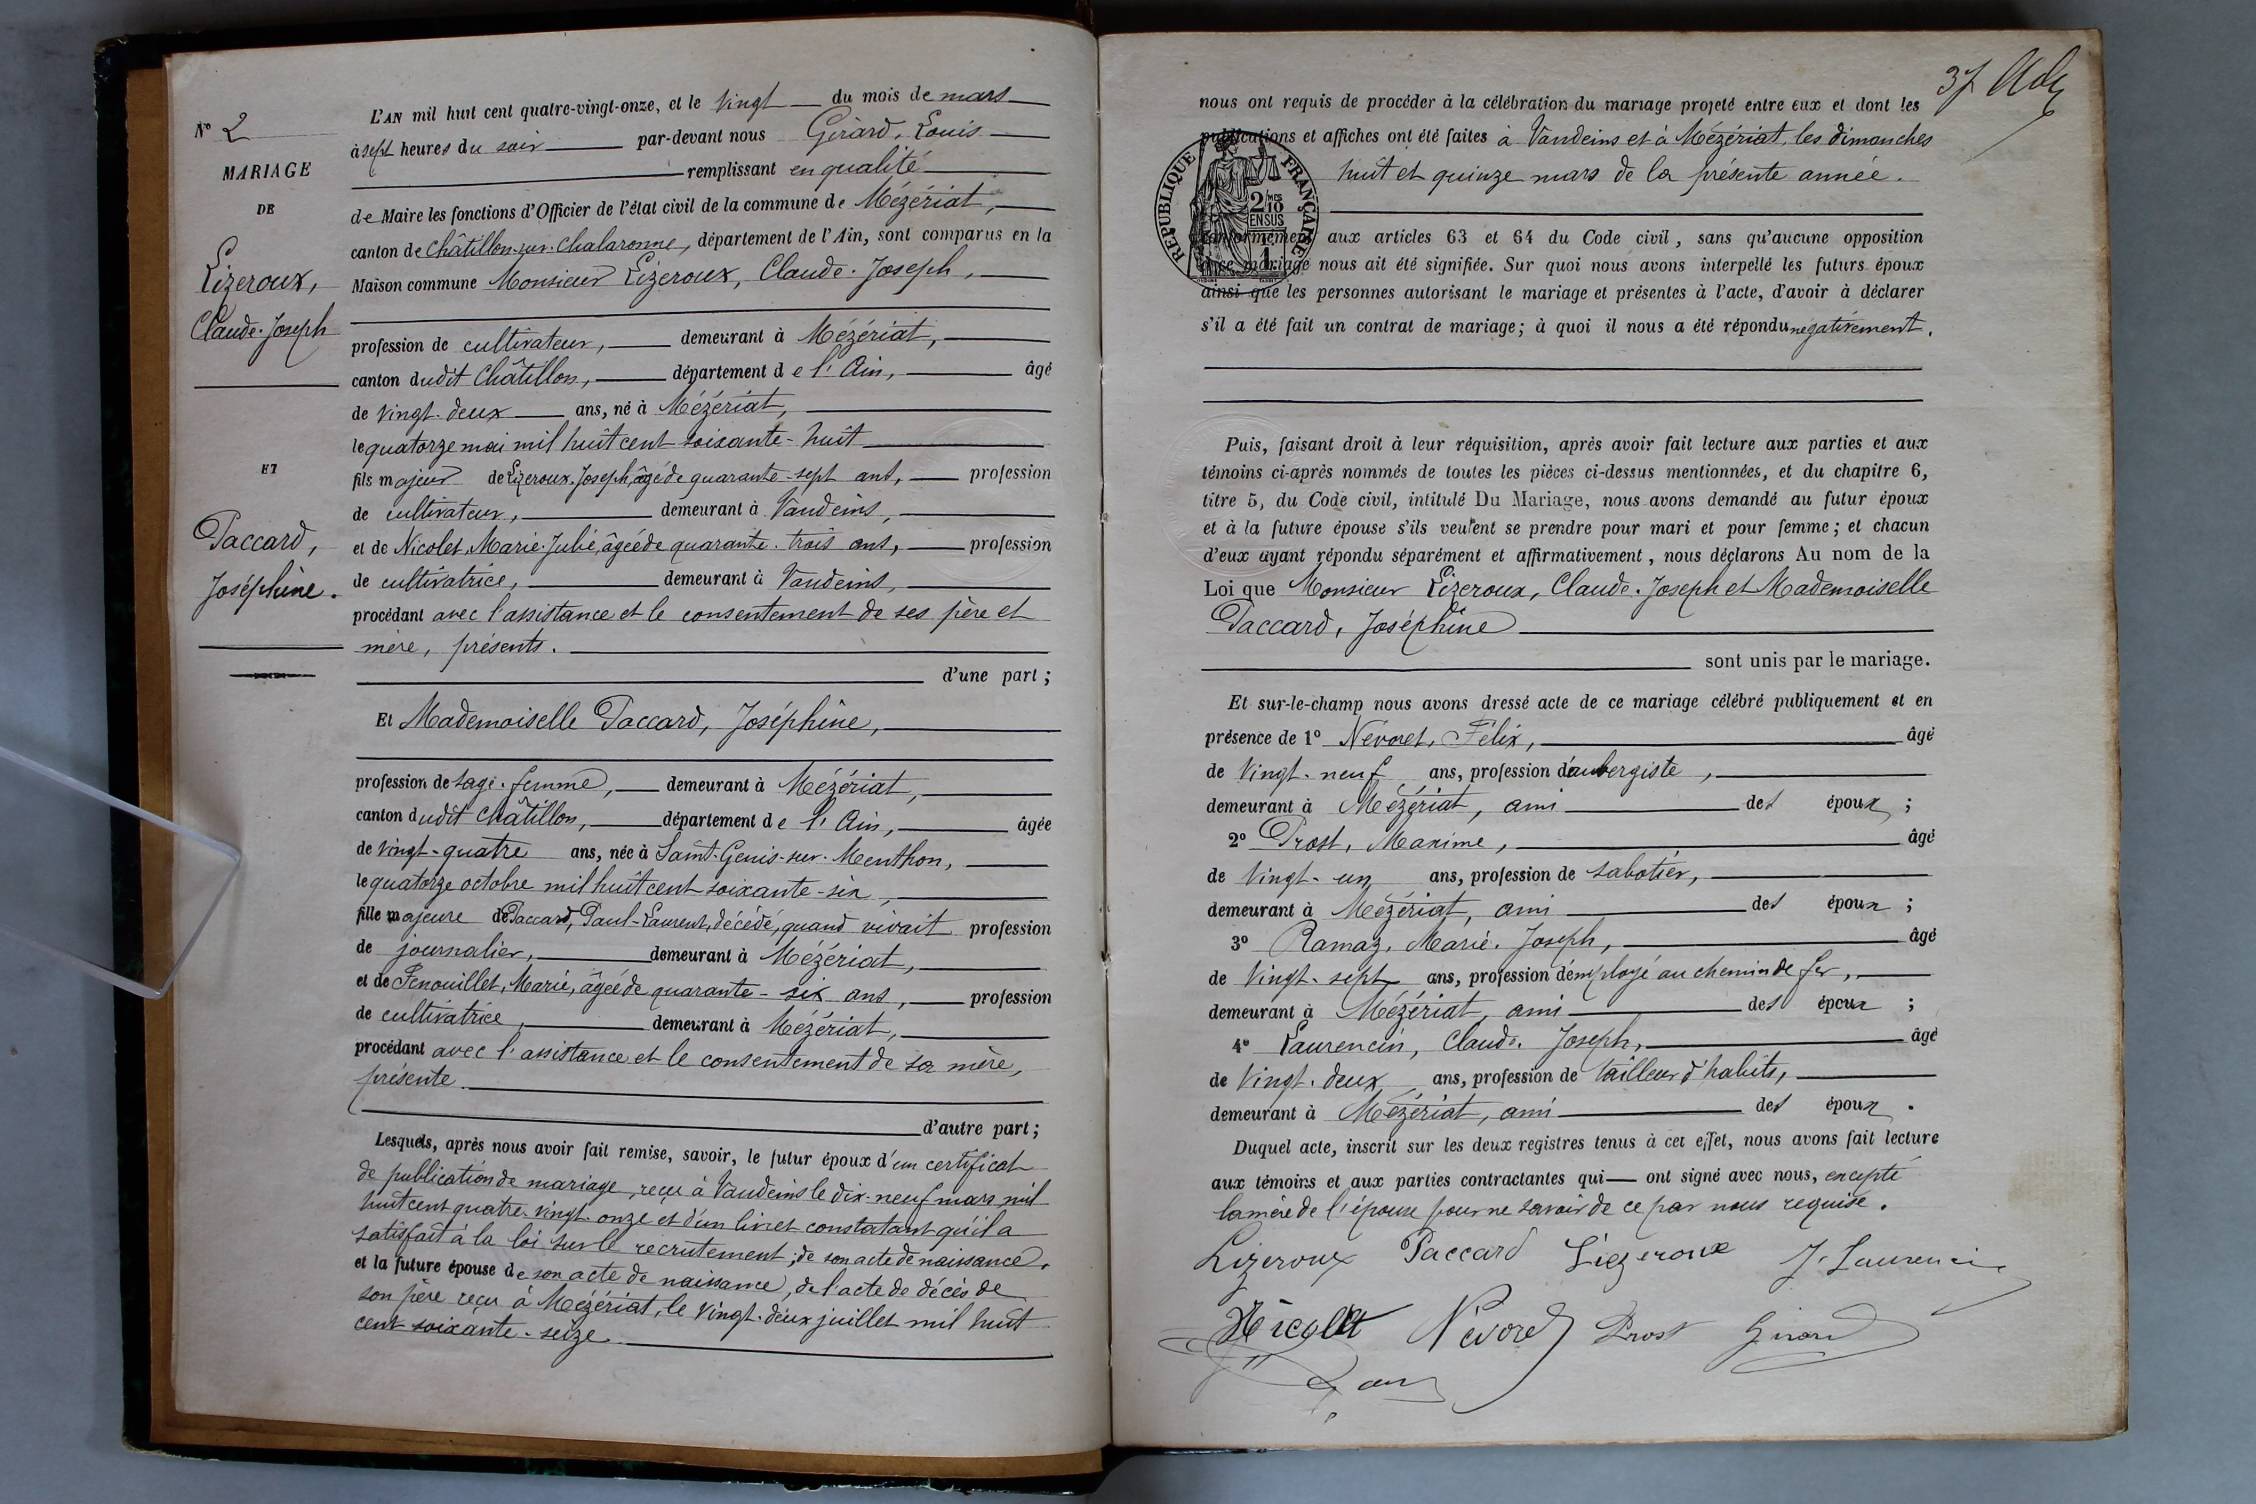 N° 2
MARIAGE
DE
Lizeroux,
Claude-Joseph
ET
Paccard,
Joséphine.
L'AN mil huit cent quatre-vingt-onze, et le vingt du mois de mars
à sept heures du soir par-devant nous Girard, Louis
remplissant en qualité
de Maire les fonctions d'Officier de l'état civil de la commune de Mézériat,
canton de Châtillon-sur-Chalaronne, département de l'Ain, sont comparus en la
Maison commune Monsieur Lizeroux, Claude-Joseph,
profession de cultivateur, demeurant à Mézériat,
canton dudit Châtillon, département de l'Ain, âgé
de vingt-deux ans, né à Mézériat,
le quatorze mai mil huit cent soixante-huit
fils majeur de Lizeroux, Joseph, âgé de quarante-sept ans, profession
de cultivateur, demeurant à Vandeins,
et de Nicolet, Marie-Julie, âgée de quarante-trois ans, profession
de cultivatrice, demeurant à Vandeins,
procédant avec l'assistance et le consentement de ses père et
mère, présents.
d'une part;
Et Mademoiselle Paccard, Joséphine,
profession de sage-femme, demeurant à Mézériat,
canton dudit Châtillon, département de l'Ain, âgée
de vingt-quatre ans, née à Saint-Genis-sur-Menthon,
le quatorze octobre mil huit cent soixante-six,
fille majeure de Paccard, Paul-Laurent, décédé, quand vivait profession
de journalier, demeurant à Mézériat,
et de Fenouillet, Marie, âgée de quarante-six ans, profession
de cultivatrice, demeurant à Mézériat,
procédant avec l'assistance et le consentement de sa mère,
présente.
d'autre part;
Lesquels, après nous avoir fait remise, savoir, le futur époux d'un certificat
de publication de mariage, reçu à Vandeins le dix-neuf mars mil
huit cent quatre-vingt-onze et d'un livret constatant qu'il a
satisfait à la loi sur le recrutement; de son acte de naissance,
et la future épouse de son acte de naissance, de l'acte de décès de
son père reçu à Mézériat, le vingt-deux juillet mil huit
cent soixante-seize
37
nous ont requis de procéder à la célébration du mariage projeté entre eux et dont les
publications et affiches ont été faites à Vandeins et à Mézériat, les dimanches
huit et quinze mars de la présente année.
RÉPUBLIQUE FRANÇAISE
2/10 EN SUS
conformément aux articles 63 et 64 du Code civil, sans qu'aucune opposition
à ce mariage nous ait été signifiée. Sur quoi nous avons interpellé les futurs époux
ainsi que les personnes autorisant le mariage et présentes à l'acte, d'avoir à déclarer
s'il a été fait un contrat de mariage; à quoi il nous a été répondu négativement.
Puis, faisant droit à leur réquisition, après avoir fait lecture aux parties et aux
témoins ci-après nommés de toutes les pièces ci-dessus mentionnées, et du chapitre 6,
titre 5, du Code civil, intitulé Du Mariage, nous avons demandé au futur époux
et à la future épouse s'ils veulent se prendre pour mari et pour femme; et chacun
d'eux ayant répondu séparément et affirmativement, nous déclarons Au nom de la
Loi que Monsieur Lizeroux, Claude-Joseph et Mademoiselle
Paccard, Joséphine
sont unis par le mariage.
Et sur-le-champ nous avons dressé acte de ce mariage célébré publiquement et en
présence de 1° Névoret, Félix, âgé
de vingt-neuf ans, profession d'aubergiste,
demeurant à Mézériat, ami des époux;
2° Prost, Maxime, âgé
de vingt-un ans, profession de sabotier,
demeurant à Mézériat, ami des époux;
3° Ramaz, Marie-Joseph, âgé
de vingt-sept ans, profession d'employé au chemin de fer,
demeurant à Mézériat, ami des époux;
4° Laurencin, Claude-Joseph, âgé
de vingt-deux ans, profession de tailleur d'habits,
demeurant à Mézériat, ami des époux.
Duquel acte, inscrit sur les deux registres tenus à cet effet, nous avons fait lecture
aux témoins et aux parties contractantes qui ont signé avec nous, excepté
la mère de l'épouse pour ne savoir de ce par nous requise.
Lizeroux Paccard Lizeroux J. Laurencin
Nicolet Névoret Prost Girard